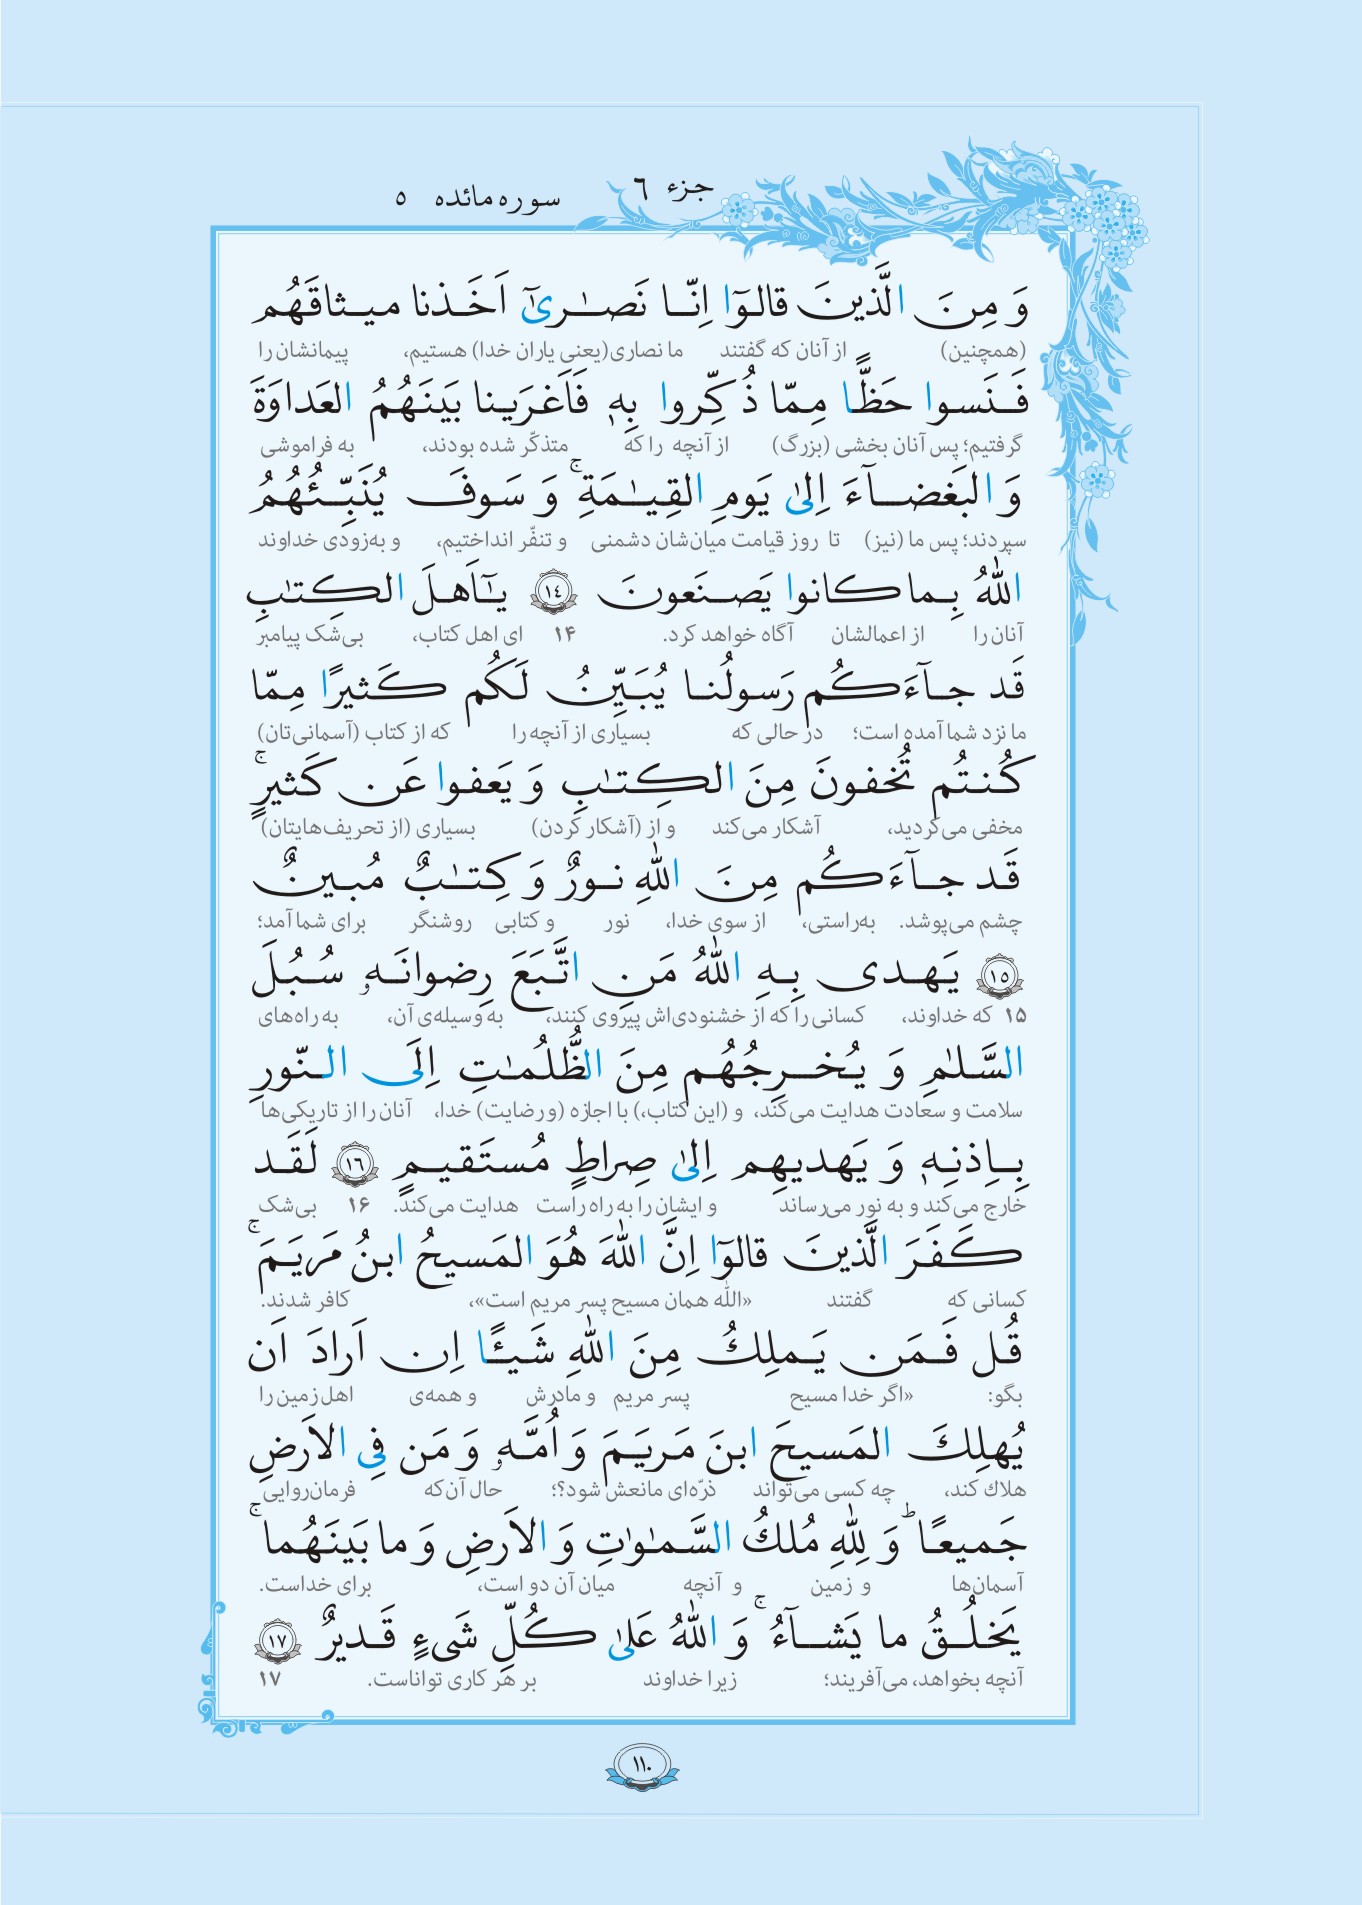 جزء ٦
سوره مائده ٥
وَ مِنَ الَّذينَ قالوٓا اِنّا نَصٰرىٰٓ اَخَذنا ميثاقَهُم
(همچنین) از آنان که گفتند ما نصاری(یعنی یاران خدا) هستیم، پیمانشان را
فَنَسوا حَظًّا مِمّا ذُكِّروا بِهٖ فَاَغرَينا بَينَهُمُ العَداوَةَ
گرفتیم؛ پس آنان بخشی (بزرگ) از آنچه را که متذکّر شده بودند، به فراموشی
وَ البَغضآءَ اِلىٰ يَومِ القِيٰمَةِ ۚ وَ سَوفَ يُنَبِّئُهُمُ
سپردند؛ پس ما (نیز) تا روز قیامت میان‌شان دشمنی و تنفّر انداختیم، و به‌زودی خداوند
اللّٰهُ بِما كانوا يَصنَعونَ ١٤ يـٰٓاَهلَ الكِتٰبِ
آنان را از اعمالشان آگاه خواهد کرد. ۱۴ ای اهل کتاب، بی‌شک پیامبر
قَد جآءَكُم رَسولُنا يُبَيِّنُ لَكُم كَثيرًا مِمّا
ما نزد شما آمده است؛ در حالی که بسیاری از آنچه را که از کتاب (آسمانی‌تان)
كُنتُم تُخفونَ مِنَ الكِتٰبِ وَ يَعفوا عَن كَثيرٍ ۚ
مخفی می‌کردید، آشکار می‌کند و از (آشکار کردن) بسیاری (از تحریف‌هایتان)
قَد جآءَكُم مِنَ اللّٰهِ نورٌ وَ كِتٰبٌ مُبينٌ
چشم می‌پوشد. به‌راستی، از سوی خدا، نور و کتابی روشنگر برای شما آمد؛
١٥ يَهدى بِهِ اللّٰهُ مَنِ اتَّبَعَ رِضوانَهٗ سُبُلَ
۱۵ که خداوند، کسانی را که از خشنودی‌اش پیروی کنند، به وسیله‌ی آن، به راه‌های
السَّلٰمِ وَ يُخرِجُهُم مِنَ الظُّلُمٰتِ اِلَى النّورِ
سلامت و سعادت هدایت می‌کند، و (این کتاب،) با اجازه (و رضایت) خدا، آنان را از تاریکی‌ها
بِاِذنِهٖ وَ يَهديهِم اِلىٰ صِراطٍ مُستَقيمٍ ١٦ لَقَد
خارج می‌کند و به نور می‌رساند و ایشان را به راه راست هدایت می‌کند. ۱۶ بی‌شک
كَفَرَ الَّذينَ قالوٓا اِنَّ اللّٰهَ هُوَ المَسيحُ ابنُ مَريَمَ ۚ
کسانی که گفتند «اللّٰه همان مسیح پسر مریم است»، کافر شدند.
قُل فَمَن يَملِكُ مِنَ اللّٰهِ شَيئًا اِن اَرادَ اَن
بگو: «اگر خدا مسیح پسر مریم و مادرش و همه‌ی اهل زمین را
يُهلِكَ المَسيحَ ابنَ مَريَمَ وَ اُمَّهٗ وَ مَن فِى الاَرضِ
هلاك کند، چه کسی می‌تواند ذرّه‌ای مانعش شود؟؛ حال آن‌که فرمان‌روایی
جَميعًا ؕ وَ لِلّٰهِ مُلكُ السَّمٰوٰتِ وَ الاَرضِ وَ ما بَينَهُما ۚ
آسمان‌ها و زمین و آنچه میان آن دو است، برای خداست.
يَخلُقُ ما يَشآءُ ۚ وَ اللّٰهُ عَلىٰ كُلِّ شَىءٍ قَديرٌ ١٧
آنچه بخواهد، می‌آفریند؛ زیرا خداوند بر هر کاری تواناست. ۱۷
١١٠